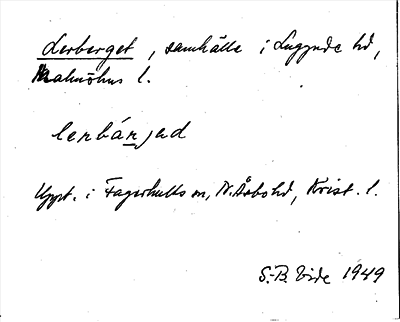 Lerberget, samhälle i Luggude hd,
Malmöhus l.
lerbárjəd
Uppt. i Fagerhults sn, N. Åsbo hd, Krist. l.
S.-B. Vide 1949